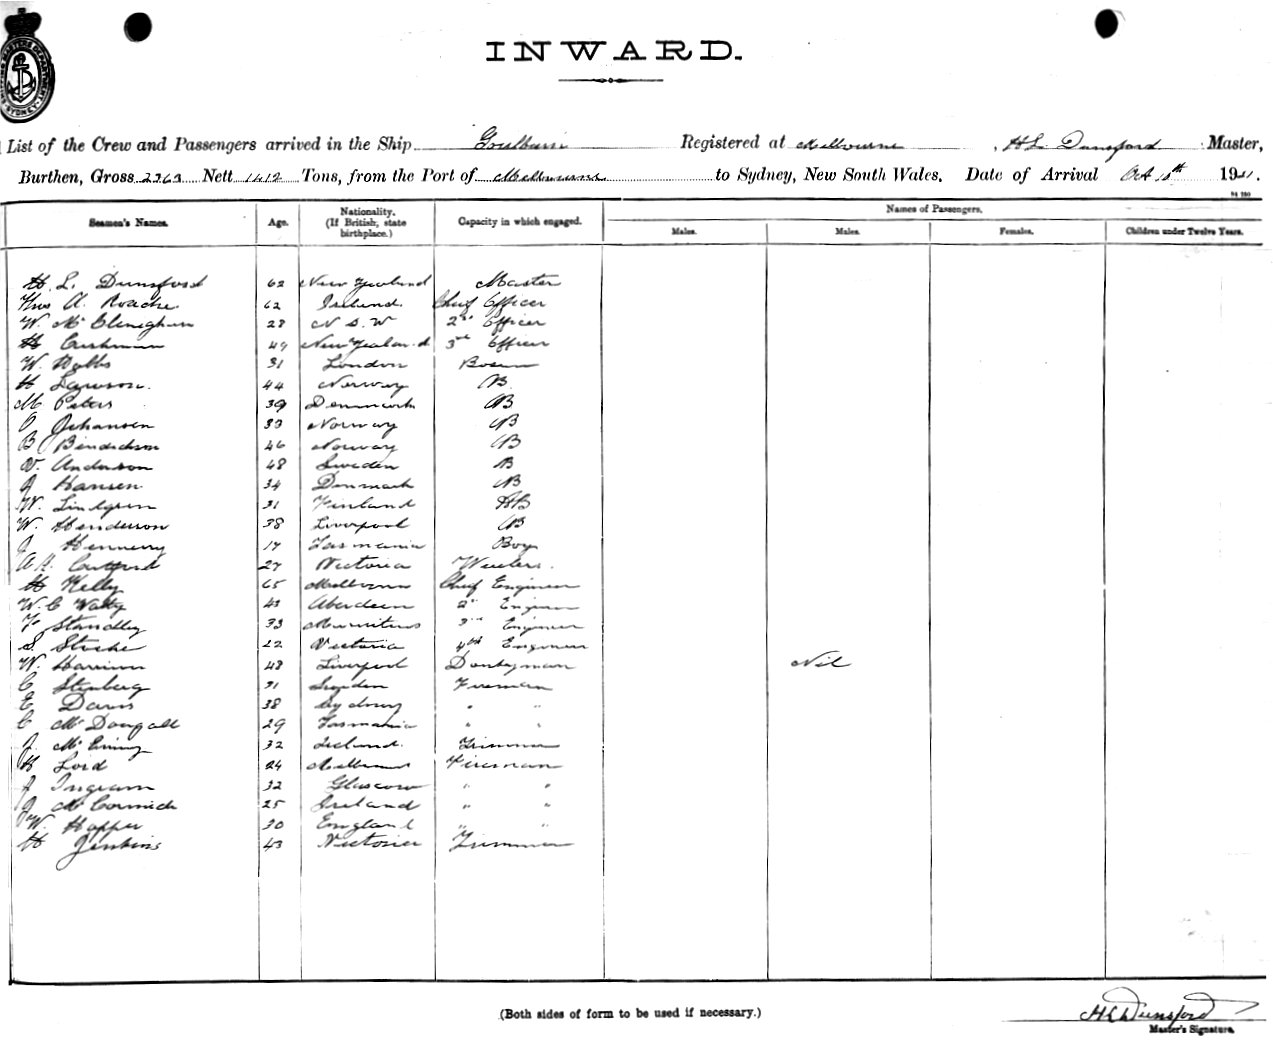 INWARD.
List of the Crew and Passengers arrived in the Ship Goulburn Registered at Melbourne, H L Dunsford Master,
Burthen, Gross Nett 1412 Tons, from the Port of Melbourne to Sydney, New South Wales. Date of Arrival Oct 19
Seamen's Names. Age. Nationality. (If British, state birthplace.) Capacity in which engaged. Names of Passengers.
Males. Males. Females. Children under Twelve Years.
H. L. Dunsford 62 New Zealand Master
A. Roache 62 Ireland Chief Officer
W. 28 N S. W 2nd Officer
H Cushman 49 New Zealand 3rd Officer
W. Dobbs 31 London Bosun
H Lawson. 44 Norway AB
M Peters 39 Denmark AB
O Johansen 33 Norway AB
B Bendickson 46 Norway AB
V. Anderson 48 Sweden AB
J Hansen 34 Denmark AB
W. Lindgren 31 Finland AB
W. Henderson 38 Liverpool AB
J Hennessy 17 Tasmania Boy
A H. 27 Victoria Wireless.
H Kelly 65 Melbourne Chief Engineer
W. C Watty 43 Aberdeen 2nd Engineer
F Standley 33 Mauritius 3rd Engineer
S. 22 Victoria 4th Engineer
W. Harrison 48 Liverpool Donkeyman
Nil
C Stenberg 31 Sweden Fireman
E Davis 38 Sydney " "
C McDougall 29 Tasmania " "
J. 32 Ireland. Trimmer
H Lord 24 Melbourne Fireman
J Ingram 32 Glascow " "
J McCormick 25 Ireland " "
W. Hopper 30 England " "
H Jenkins 43 Victoria Trimmer
(Both sides of form to be used if necessary.)
H L Dunsford
Master's Signature.